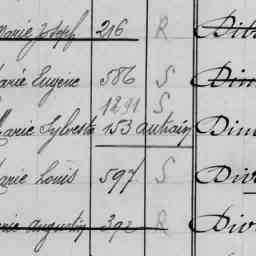 Marie Joseph 216 R Dib
Marie Eugène 586 S Din
1291 S
Marie Sylvestre 153 autrain Dim
Marie Louis 597 S Div
Marie Augustin 392 R Div